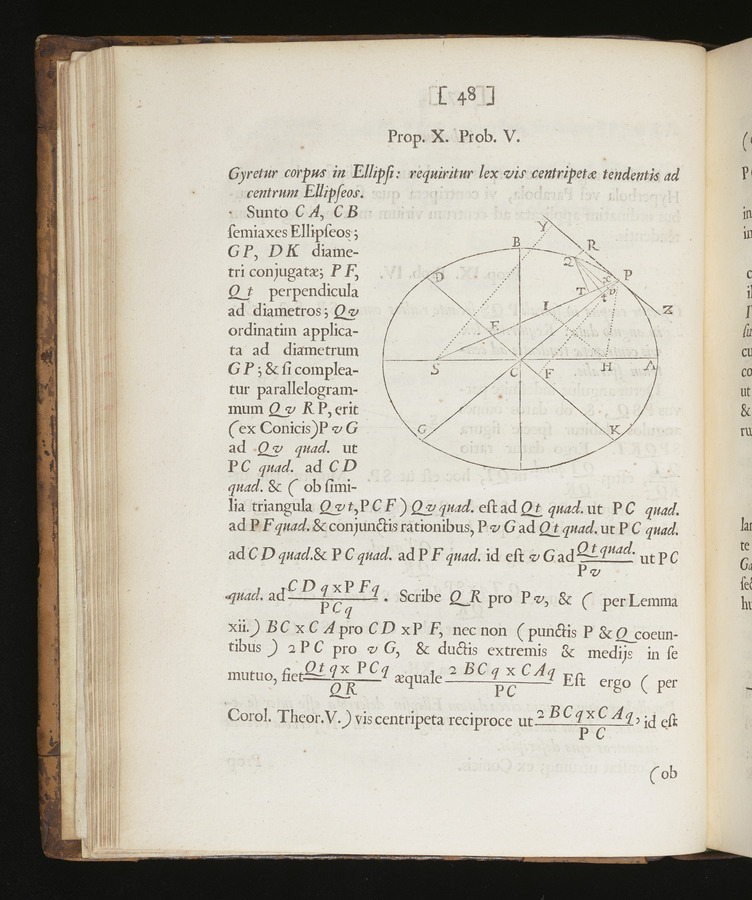 [ 48 ]
Prop. X. Prob. V.
Gyretur corpus in Ellipſi: requiritur lex vis centripetæ tendentis ad
centrum Ellipſeos.
Sunto C A, C B
ſemiaxes Ellipſeos;
G P, D K diame-
tri conjugatæ; P F,
Q t perpendicula
ad diametros; Q v
ordinatim applica-
ta ad diametrum
G P; & ſi complea-
tur parallelogram-
mum Q v R P, erit
(ex Conicis) P v G
ad Q v quad. ut
P C quad. ad C D
quad. & ( ob ſimi-
lia triangula Q v t, P C F ) Q v quad. eſt ad Q t quad. ut P C quad.
ad P F quad. & conjunctis rationibus, P v G ad Q t quad. ut P C quad.
ad C D quad. & P C quad. ad P F quad. id eſt v G ad Q t quad. / P v ut P C
quad. ad C D q x P F q / P C q . Scribe Q R pro P v, & ( per Lemma
xii.) B C x C A pro C D x P F, nec non ( punctis P & Q coeun-
tibus ) 2 P C pro v G, & ductis extremis & medijs in ſe
mutuo, fiet Q t q x P C q / Q R æquale 2 B C q x C A q / P C Eſt ergo ( per
Corol. Theor. V.) vis centripeta reciproce ut 2 B C q x C A q / P C, id eſt
(ob
Y
B
R
Q
P
D
x
T
v
t
I
Z
E
S
C
F
H
A
G
K